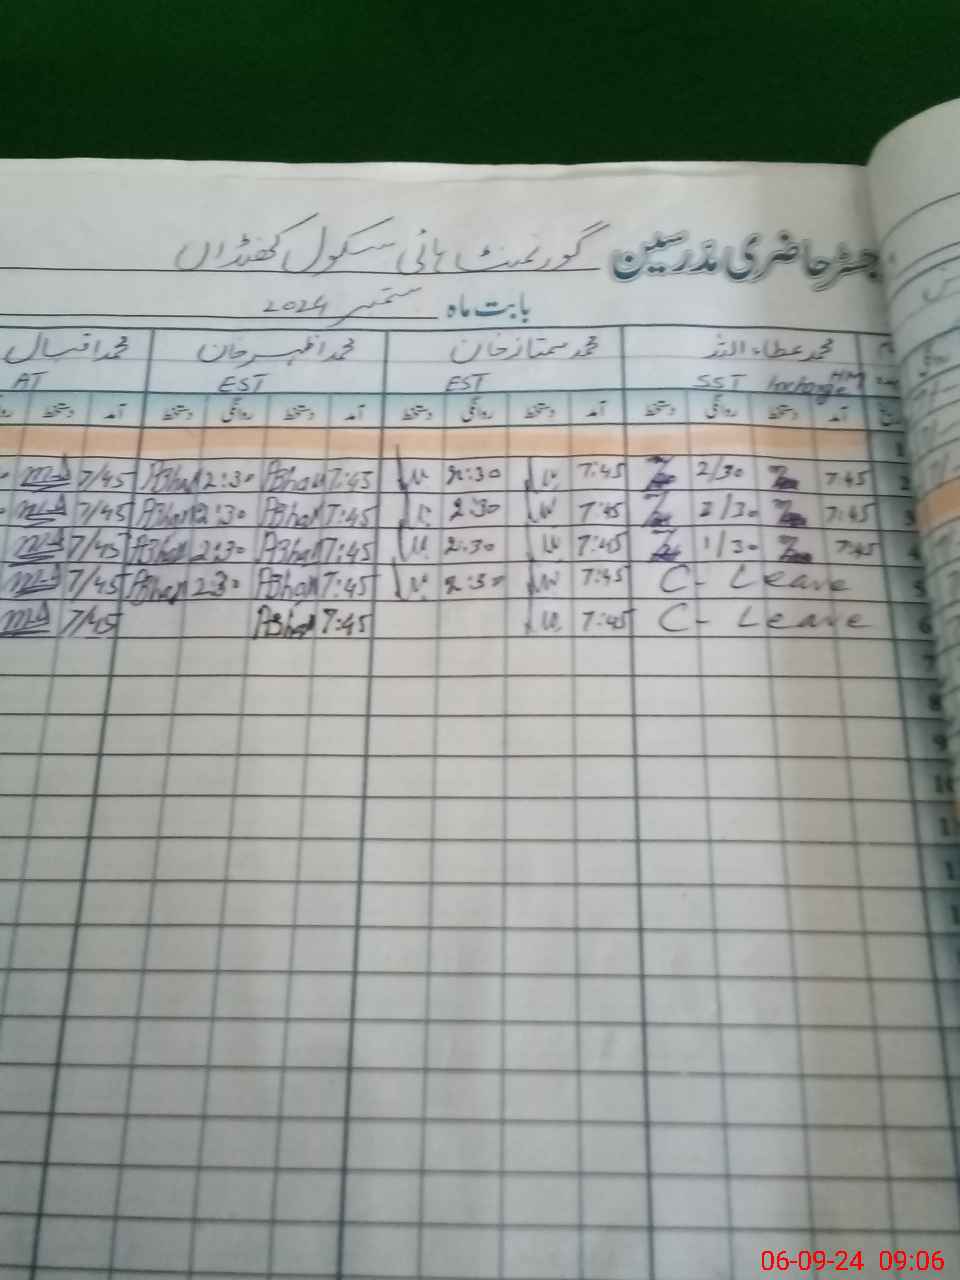 رجسٹر حاضری مدرسین گورنمنٹ ہائی سکول کھنڈراں
بابت ماہ ستمبر 2024
محمد عطاء اللہ محمد ممتاز خان محمد اظہر خان محمد اقبال
SST Incharge HM EST EST AT
آمد دستخط روانگی دستخط آمد دستخط روانگی دستخط آمد دستخط روانگی دستخط آمد دستخط
1
2 7:45 2/30 7:45 2:30 7:45 Azhar 2:30 Azhar 7/45
3 7:45 2/30 7:45 2:30 7:45 Azhar 2:30 Azhar 7/45
4 7:45 1/30 7:45 2:30 7:45 Azhar 2:30 Azhar 7/45
5 C- Leave 7:45 2:30 7:45 Azhar 2:30 Azhar 7/45
6 C- Leave 7:45 7:45 Azhar 7/45
7
8
9
10
06-09-24 09:06